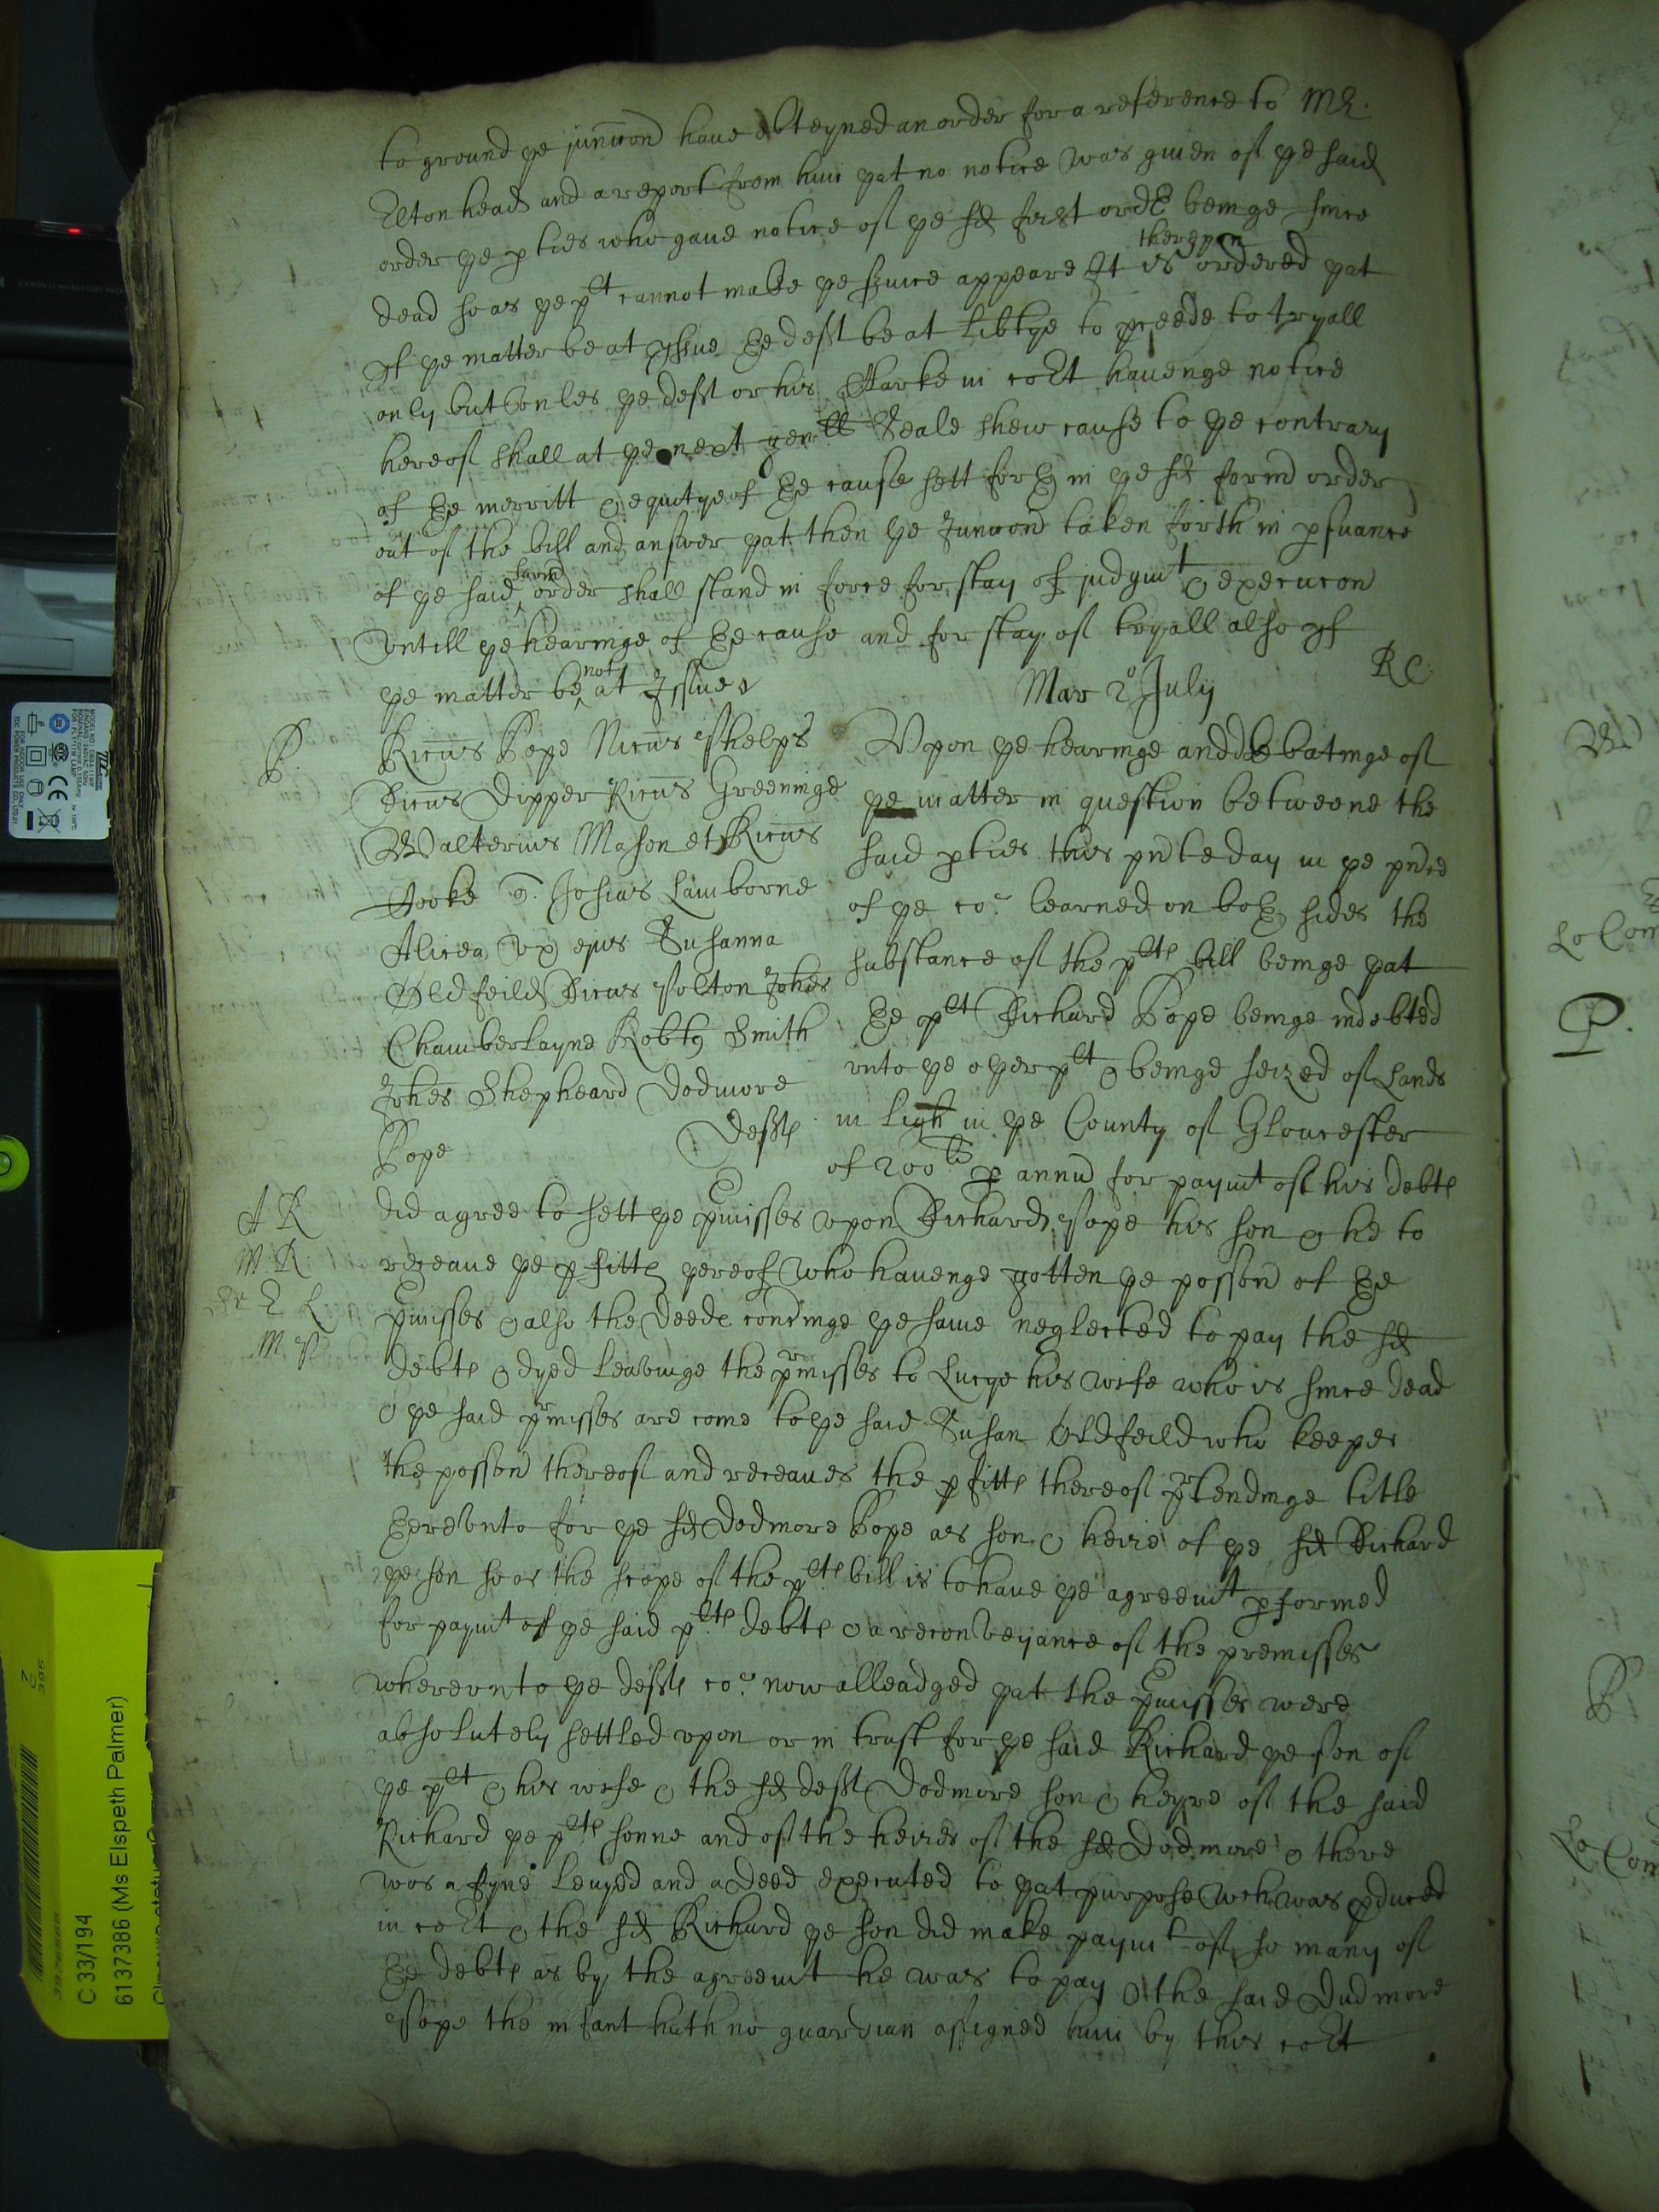 to ground ye iunccon haue obteyned an order for a reference to Mr.
Elton head and a report from him yat no notice was giuen of ye said
order ye pties who gaue notice of ye sd first order beinge since
dead so as ye plt cannot make ye seruice appeare It is thereupon ordered yat
if ye matter be at yssue ye deft be at libtye to pceede to tryall
only but vnles ye deft or his Clarke in cort hauenge notice
hereof shall at ye next genrll Seale shew cause to ye contrary
of ye merritt & equitye of ye cause sett forth in ye sd formd order
out of the bill and answer yat then ye Iunccon taken forth in psuance
of ye said formd order shall stand in force for stay of iudgmt & execucon
vntill ye hearinge of ye cause and for stay of tryall also if
ye matter be not at Issue
RC
Mar 2o July
P.
Ricus Pope Nicus Phelps
Ricus Dipper Ricus Greeninge
Walterius Mason et Ricus
Cooke q. Josias Lamborne
Alicea vx eius Susanna
Oldfeild Ricus Polton Johes
Chamberlayne Robtus Smith
Johes Shepheard Dodmore
Pope
Deftes
Vpon ye hearinge and debatinge of
ye matter in question betweene the
said pties this pnte day in ye pnce
of ye co: learned on both sides the
substance of the pltes bill beinge yat
ye plt Richard Pope beinge indebted
vnto ye oyer plt & beinge seized of Lands
in Ligh in ye County of Gloucester
of 200li p annu for paymt of his debtes
A R
M. R
Sr E L
M P
did agree to sett ye pmisses vpon Richard Pope his son & he to
receaue ye pfittes yereof who hauenge gotten ye posson of ye
pmisses & also the deedes concinge ye same neglected to pay the sd
debtes & dyed leavinge the prmisses to Lucye his wife who is since dead
& ye said prmisses are come to ye said Susan Oldfeild who keepes
the posson thereof and receaues the pfittes thereof prtendinge title
therevnto for ye sd Dodmore Pope as son & heire of ye sd Richard
ye son so as the scope of the pltes bill is to haue ye agreemt pformed
for paymt of ye said pltes debtes & a reconveyance of the premisses
wherevnto ye deftes co: now alleadged yat the pmisses were
absolutely settled vpon or in trust for ye said Richard ye son of
ye plt & his wife & the sd deft Dodmore son & heyre of the said
Richard ye pltes sonne and of the heires of the sd Dodmore & there
was a fyne leuyed and a deed executed to yat purpose wch was pduced
in cort & the sd Richard ye son did make paymt of so many of
ye debtes as by the agreemt he was to pay & the said Dudmore
Pope the infant hath no guardian assigned him by this cort
C 33/194
6137386 (Ms Elspeth Palmer)